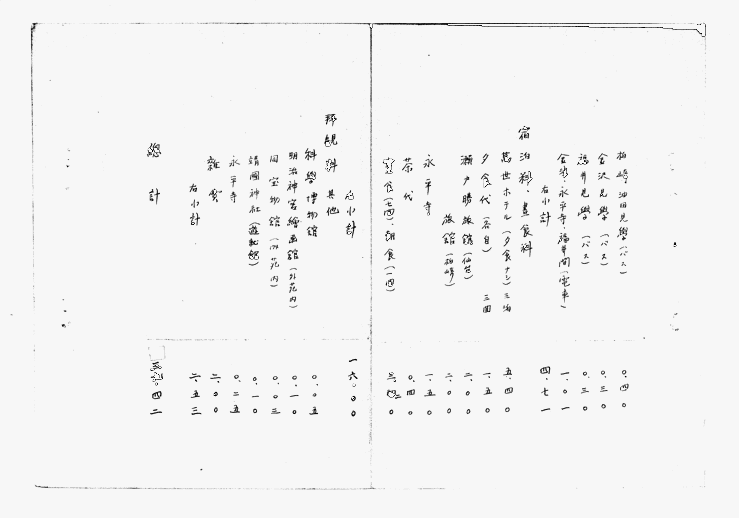 柏崎油田見學(バス) 〇.四〇
金沢見學(バス) 〇.三〇
福井見學(バス) 〇.三〇
金沢・永平寺・福井間(電車) 一.〇一
右小計 四.七一
宿泊料・晝食料
萬世ホテル(夕食ナシ)三泊 五.四〇
夕食代(各自)三回 一.五〇
瀬戸勝旅館(仙台) 二.〇〇
旅館(柏崎) 二.〇〇
永平寺 一.五〇
茶代 〇.四〇
晝食(七回)朝食(一回)
右小計 一六.〇〇
拝観料其他
科學博物館 〇.〇五
明治神宮繪画館(外苑内) 〇.一〇
国宝物館(外苑内) 〇.〇三
靖國神社(遊就館) 〇.一〇
永平寺 〇.二五
雜費 二.〇〇
右小計 二.五三
總計